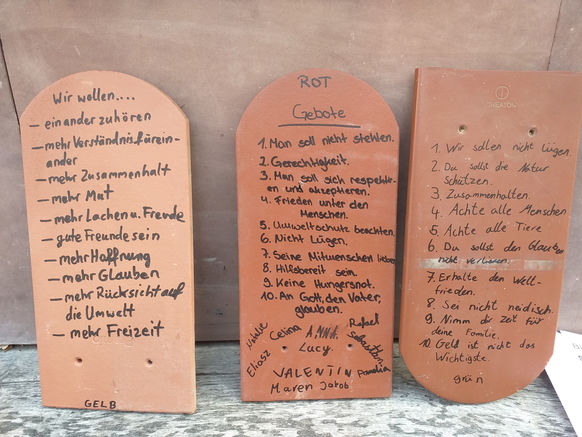 Wir wollen....
– einander zuhören
– mehr Verständnis füreinander
– mehr Zusammenhalt
– mehr Mut
– mehr Lachen u. Freude
– gute Freunde sein
– mehr Hoffnung
– mehr Glauben
– mehr Rücksicht auf
die Umwelt
– mehr Freizeit
GELB
ROT
Gebote
1. Man soll nicht stehlen.
2. Gerechtigkeit.
3. Man soll sich respektier-
en und akzeptieren.
4. Frieden unter den
Menschen.
5. Umweltschutz beachten.
6. Nicht Lügen.
7. Seine Mitmenschen lieben
8. Hilfsbereit sein.
9. Keine Hungersnot.
10. An Gott, den Vater,
glauben.
Celina ANNA Rafael
Eliasz Lucy Sebastian
VALENTIN
Maren Jakob
CREATON
1. Wir sollen nicht lügen.
2. Du sollst die Natur
schützen.
3. Zusammenhalten.
4. Achte alle Menschen
5. Achte alle Tiere
6. Du sollst den Glauben
nicht verlieren.
7. Erhalte den Welt-
frieden.
8. Sei nicht neidisch.
9. Nimm dir Zeit für
deine Familie.
10. Geld ist nicht das
Wichtigste.
grün